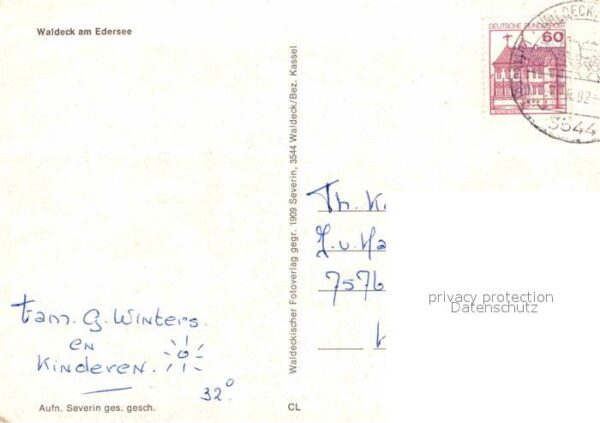 Waldeck am Edersee
DEUTSCHE BUNDESPOST
60
3544
Waldeckischer Fotoverlag gegr. 1909 Severin, 3544 Waldeck/Bez. Kassel
Th.
7576
privacy protection
Datenschutz
fam. G. Winters.
en
Kinderen.
32°
Aufn. Severin ges. gesch.
CL